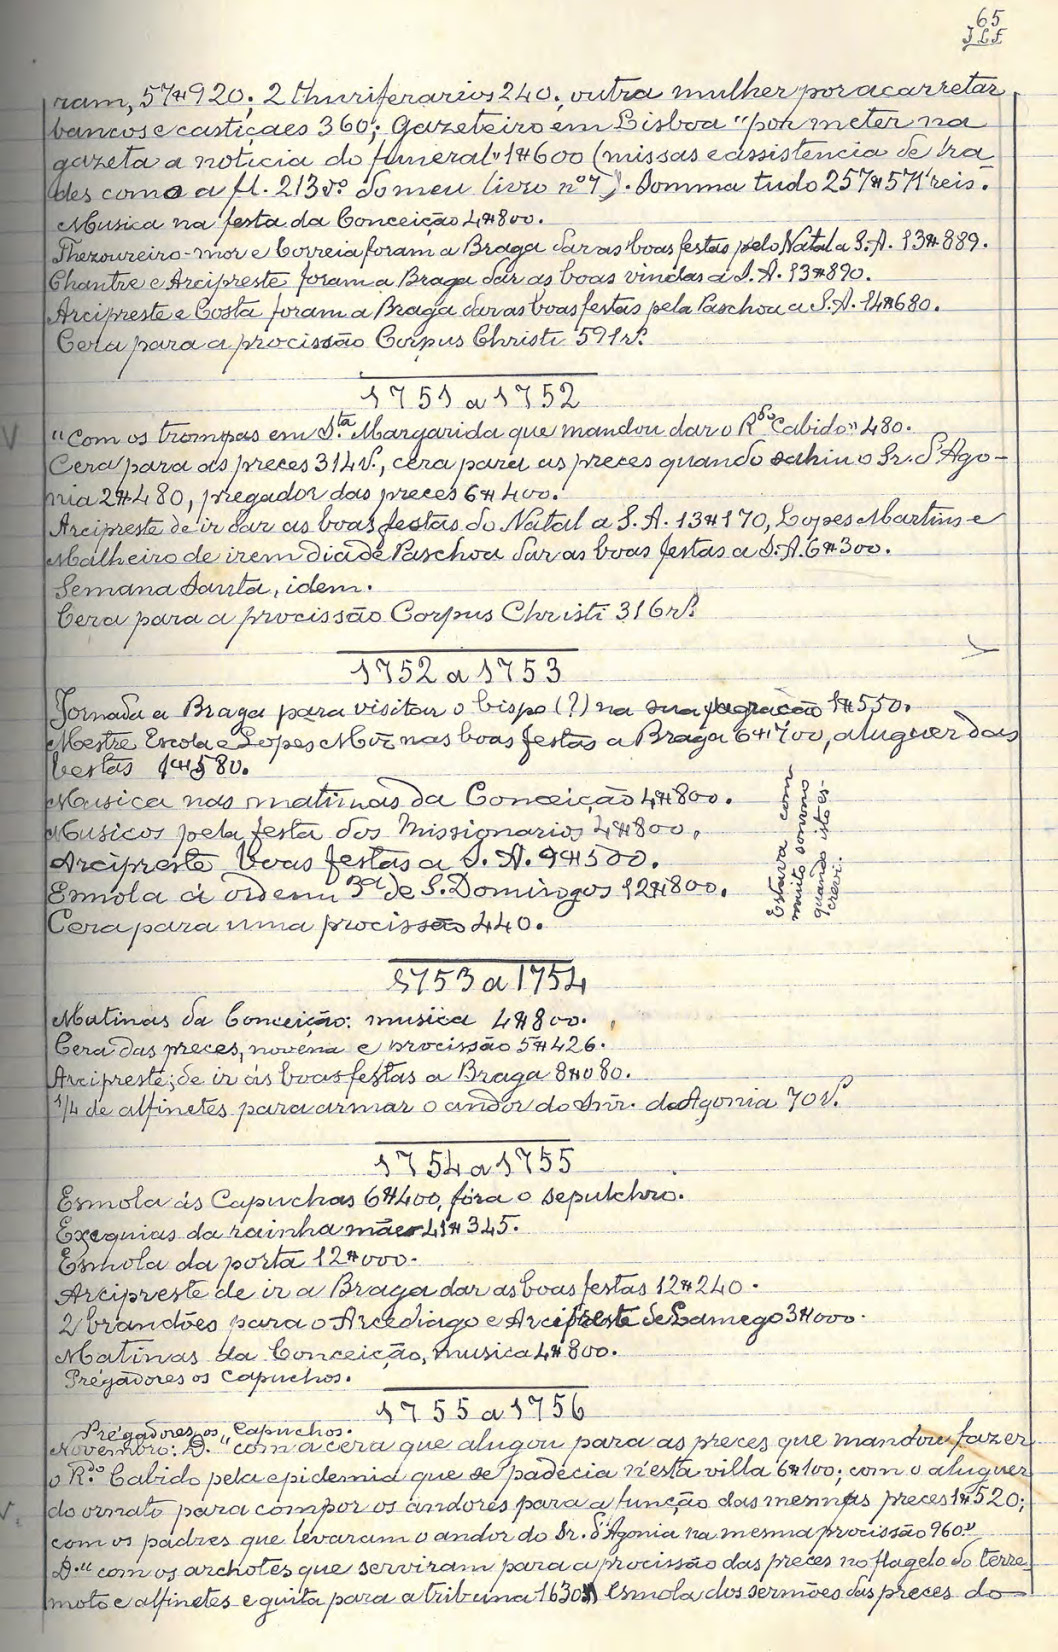 65
J L F
ram, 57$920; 2 thuriferarios 240; outra mulher por acarretar
bancos e castiçaes 360; Gazeteiro em Lisboa "por meter na
gazeta a noticia do funeral" 1$600 (missas e assistencia de fra
des como a fl. 213vº do meu livro nº 7). Somma tudo 257$571 reis.
Musica na festa da Conceição 4$800.
Thezoureiro-mor e Correia foram a Braga dar as boas festas pelo Natal a S. A. 13$889.
Chantre e Arcipreste foram a Braga dar as boas vindas a S. A. 13$890.
Arcipreste e Costa foram a Braga dar as boas festas pela Paschoa a S. A. 14$680.
Cera para a procissão Corpus Christi 591 rs.
1751 a 1752
"Com os trompas em Sta Margarida que mandou dar o Rdo Cabido" 480.
Cera para as preces 314 rs., cera para as preces quando sahiu o Sr. d'Ago-
nia 2$480, pregador das preces 6$400.
Arcipreste de ir dar as boas festas do Natal a S. A. 13$170, Lopes Martins e
Malheiro de irem dia de Paschoa dar as boas festas a S. A. 6$300.
Semana Santa, idem.
Cera para a procissão Corpus Christi 316 rs.
1752 a 1753
Jornada a Braga para visitar o bispo (?) na sua sagração 1$550.
Mestre Escola e Lopes Mor nas boas festas a Braga 6$700, aluguer das
bestas 1$580.
Musica nas matinas da Conceição 4$800.
Musicos pela festa dos Missionarios 4$800.
Arcipreste boas festas a S. A. 9$500.
Esmola á ordem 3ª de S. Domingos 12$800.
Cera para uma procissão 440.
Estava com
muito somno
quando isto es-
crevi.
1753 a 1754
Matinas da Conceição: musica 4$800.
Cera das preces, novena e procissão 5$426.
Arcipreste; de ir ás boas festas a Braga 8$080.
1/4 de alfinetes para armar o andor do Snr. da Agonia 70 rs.
1754 a 1755
Esmola ás Capuchas 6$400, fóra o sepulchro.
Exequias da rainha mãe 41$345.
Esmola da porta 12$000.
Arcipreste de ir a Braga dar as boas festas 12$240.
2 brandões para o Arcediago e Arcipreste de Lamego 3$000.
Matinas da Conceição, musica 4$800.
Prégadores os Capuchos.
1755 a 1756
Prégadores os Capuchos.
Novembro: D. "com a cera que alugou para as preces que mandou fazer
o Rdo Cabido pela epidemia que se padecia n'esta villa 6$100; com o aluguer
do ornato para compor os andores para a função das mesmas preces 1$520;
com os padres que levaram o andor do Sr. d'Agonia na mesma procissão 960."
D. "com os archotes que serviram para a procissão das preces no flagelo do terre-
moto e alfinetes e guita para a tribuna 1630" Esmola dos sermões das preces do